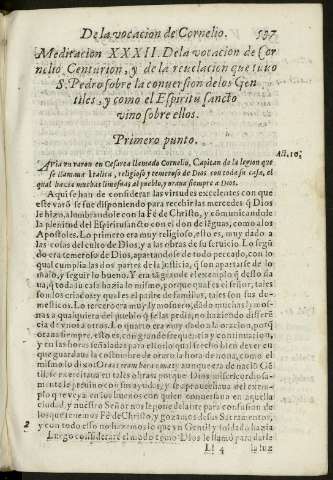 De la vocacion de Cornelio. 537
Meditacion XXXII. De la vocacion de Cor
nelio Centurion, y de la reuelacion que tuuo
S. Pedro sobre la conuersion de los Gen
tiles, y como el Espiritu sancto
vino sobre ellos.
Primero punto.
Auia vn varon en Cesarea llamado Cornelio, Capitan de la legion que
Act. 10.
se llamaua Italica, religioso y temeroso de Dios con toda su casa, el
qual hazia muchas limosnas al pueblo, y oraua siempre a Dios.
Aqui se han de considerar las virtudes excelentes con que
este varõ se fue disponiendo para recibir las mercedes q̃ Dios
le hizo, alumbrandole con la Fè de Christo, y comunicandole
la plenitud del Espiritu sancto con el don de lẽguas, como a los
Apostoles. Lo primero era muy religioso, esto es, muy dado a
las cosas del culto de Dios, y a las obras de su seruicio. Lo segũ
do era temeroso de Dios, apartandose de todo peccado, con lo
qual cumplia las dos partes de la justicia, q̃ son apartarse de lo
malo, y seguir lo bueno. Y era tã grande el exemplo q̃ desto da
ua, q̃ toda su casa hazia lo mismo, porque qual es el señor, tales
son los criados, y qual es el padre de familias, tales son sus do-
mesticos. Lo tercero era muy limosnero, dãdo muchas lymos-
nas a qualquiera del pueblo q̃ se las pedia, no haziendo differẽ
cia de vno a otros. Lo quarto era muy dado a la oracion, porq̃
oraua siempre, esto es, con grande frequencia y continuacion,
y en las horas señaladas para ello
que guardaua la costumbre de orar a la hora de nona, como el
mismo lo dixo
le se exercitaua en tales obras, porque Dios misericordiosa-
mente le preuino con sus ayudas, y se aprouechaua del exem-
plo que veya en los buenos con quien conuersaua en aquella
ciudad, y nuestro Señor nos le pone delante para confusion de
los que tenemos Fè de Christo, y gozamos de sus Sacramentos,
2 y con todo esso no hazemos lo que vn Gentil y soldado hazia
Luego considerarè el modo como Dios le llamò para darle
Ll 4 la luz